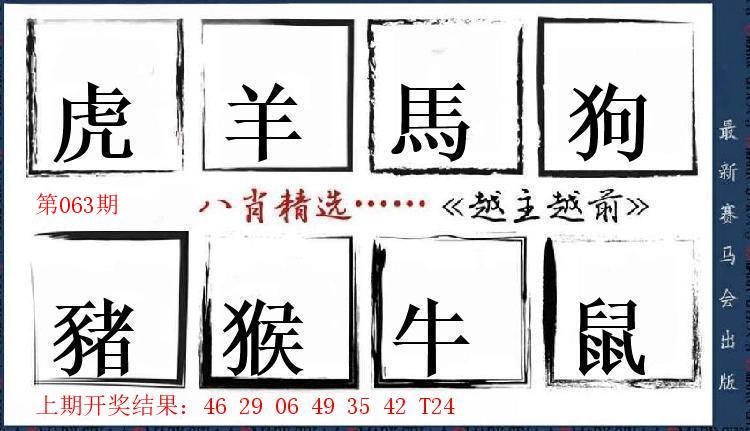 虎 羊 馬 狗
第063期 八肖精选……《越主越前》
豬 猴 牛 鼠
上期开奖结果：46 29 06 49 35 42 T24
最新赛马会出版